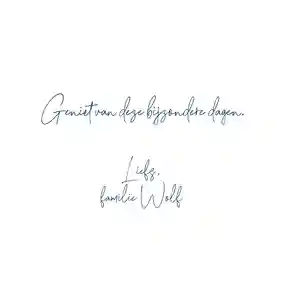 Geniet van deze bijzondere dagen.
Liefs,
familie Wolf